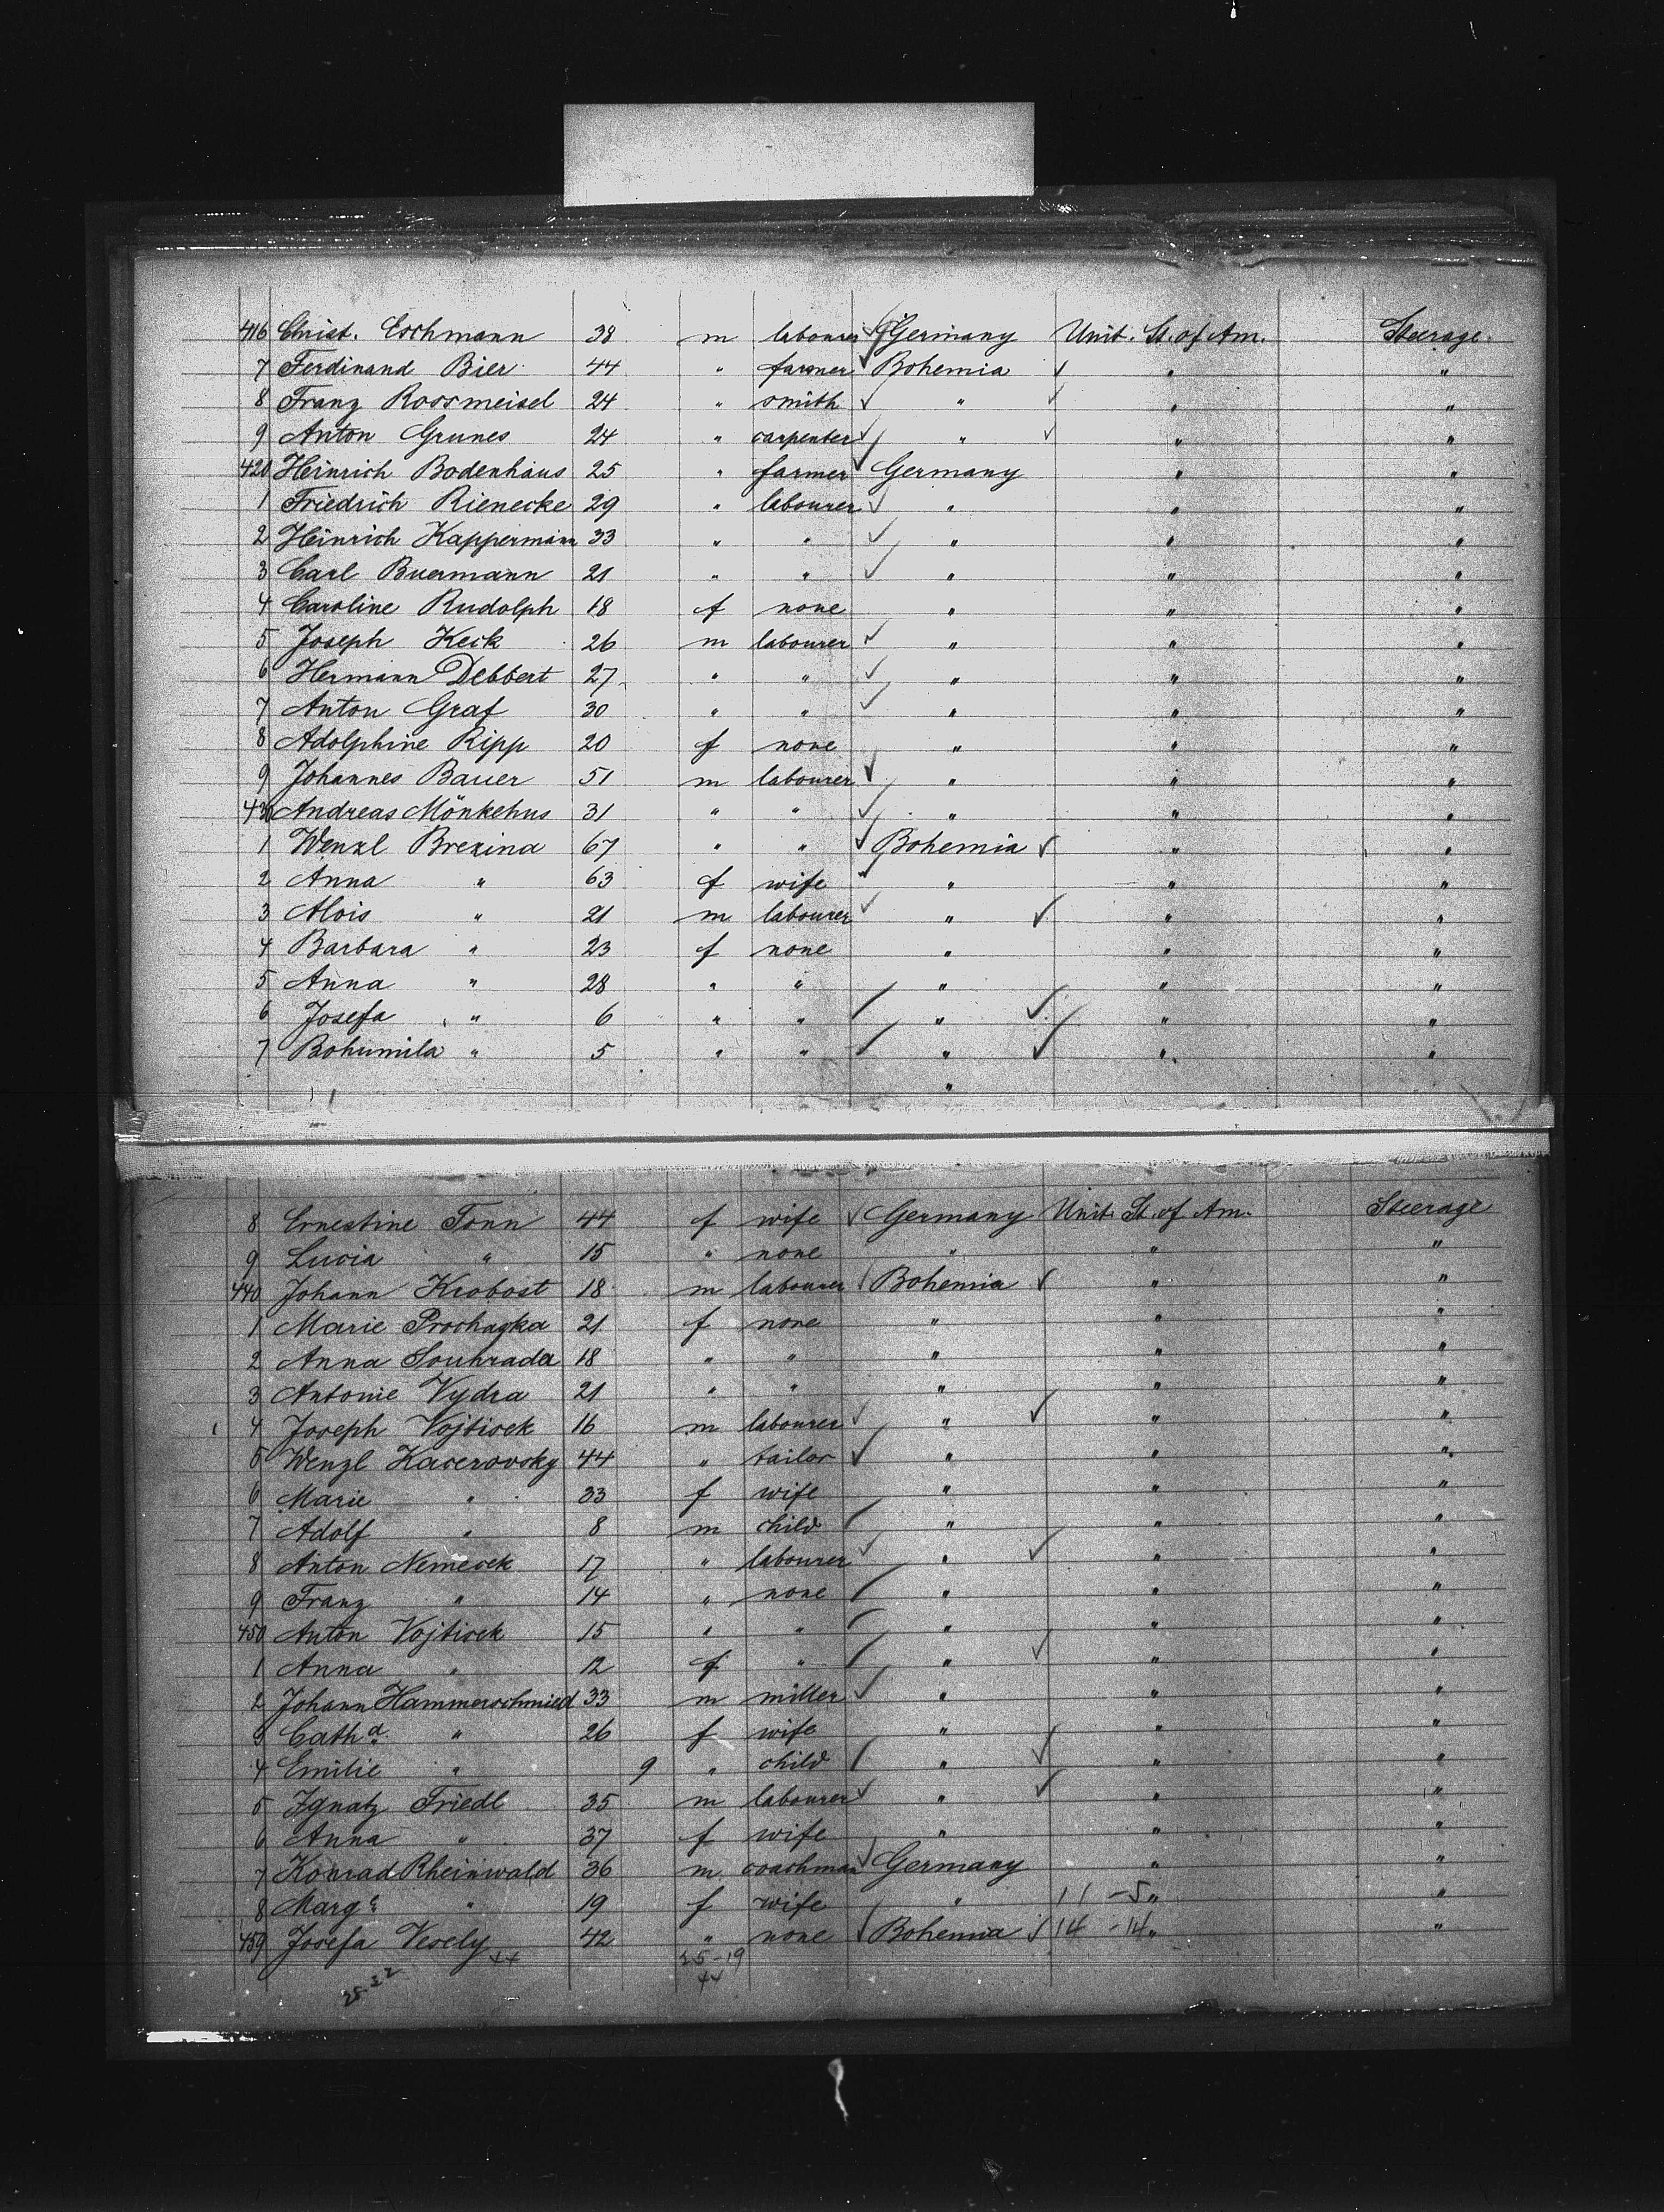 416 Christ. Eschmann 38 m labourer Germany Unit. St. of Am. Steerage.
7 Ferdinand Bier 44 " farmer Bohemia " "
8 Franz Rossmeisel 24 " smith " " "
9 Anton Grunes 24 " carpenter " " "
420 Heinrich Bodenhaus 25 " farmer Germany " "
1 Friedrich Rienecke 29 " labourer " " "
2 Heinrich Kappermann 33 " " " " "
3 Carl Buermann 21 " " " " "
4 Caroline Rudolph 18 f none " " "
5 Joseph Keck 26 m labourer " " "
6 Hermann Debbert 27 " " " " "
7 Anton Graf 30 " " " " "
8 Adolphine Ripp 20 f none " " "
9 Johannes Bauer 51 m labourer " " "
430 Andreas Mönkehus 31 " " " " "
1 Wenzl Brezina 67 " " Bohemia " "
2 Anna " 63 f wife " " "
3 Alois " 21 m labourer " " "
4 Barbara " 23 f none " " "
5 Anna " 28 " " " " "
6 Josefa " 6 " " " " "
7 Bohumila " 5 " " " " "
"
8 Ernestine Tonn 44 f wife Germany Unit. St. of Am. Steerage
9 Lucia " 15 " none " " "
440 Johann Krobost 18 m labourer Bohemia " "
1 Marie Prochazka 21 f none " " "
2 Anna Souhrada 18 " " " " "
3 Antonie Vydra 21 " " " " "
4 Joseph Vojtisek 16 m labourer " " "
5 Wenzl Kacerovsky 44 " tailor " " "
6 Marie " 33 f wife " " "
7 Adolf " 8 m child " " "
8 Anton Nemecek 17 " labourer " " "
9 Franz " 14 " none " " "
450 Anton Vojtisek 15 " " " " "
1 Anna " 12 f " " " "
2 Johann Hammerschmied 33 m miller " " "
3 Cath.a " 26 f wife " " "
4 Emilie " 9 " child " " "
5 Ignatz Friedl 35 m labourer " " "
6 Anna " 37 f wife " " "
7 Konrad Rheinwald 36 m coachman Germany " "
8 Marg. " 19 f wife " 11 - 5 " "
459 Josefa Vesely 42 " none Bohemia 14 - 14 " "
25-19
44